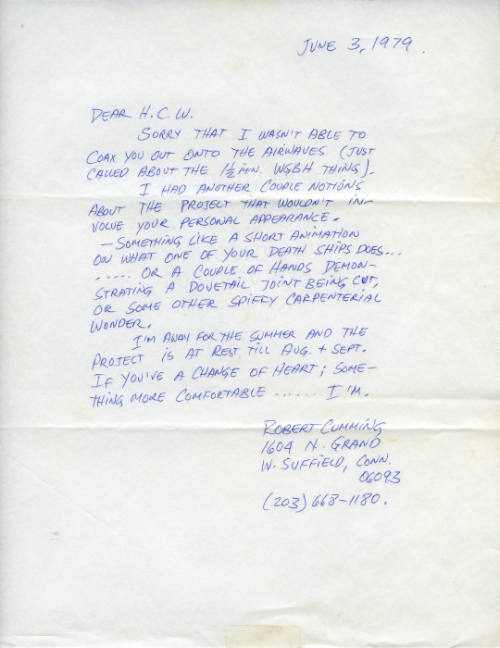 JUNE 3, 1979.
DEAR H.C.W.
SORRY THAT I WASN'T ABLE TO
COAX YOU OUT ONTO THE AIRWAVES (JUST
CALLED ABOUT THE 1½ MIN. WGBH THING).
I HAD ANOTHER COUPLE NOTIONS
ABOUT THE PROJECT THAT WOULDN'T IN-
VOLVE YOUR PERSONAL APPEARANCE.
—SOMETHING LIKE A SHORT ANIMATION
ON WHAT ONE OF YOUR DEATH SHIPS DOES...
..... OR A COUPLE OF HANDS DEMON-
STRATING A DOVETAIL JOINT BEING CUT,
OR SOME OTHER SPIFFY CARPENTERIAL
WONDER.
I'M AWAY FOR THE SUMMER AND THE
PROJECT IS AT REST TILL AUG. + SEPT.
IF YOU'VE A CHANGE OF HEART; SOME-
THING MORE COMFORTABLE ...... I'M.
ROBERT CUMMING
1604 N. GRAND
W. SUFFIELD, CONN.
06093
(203) 668-1180.